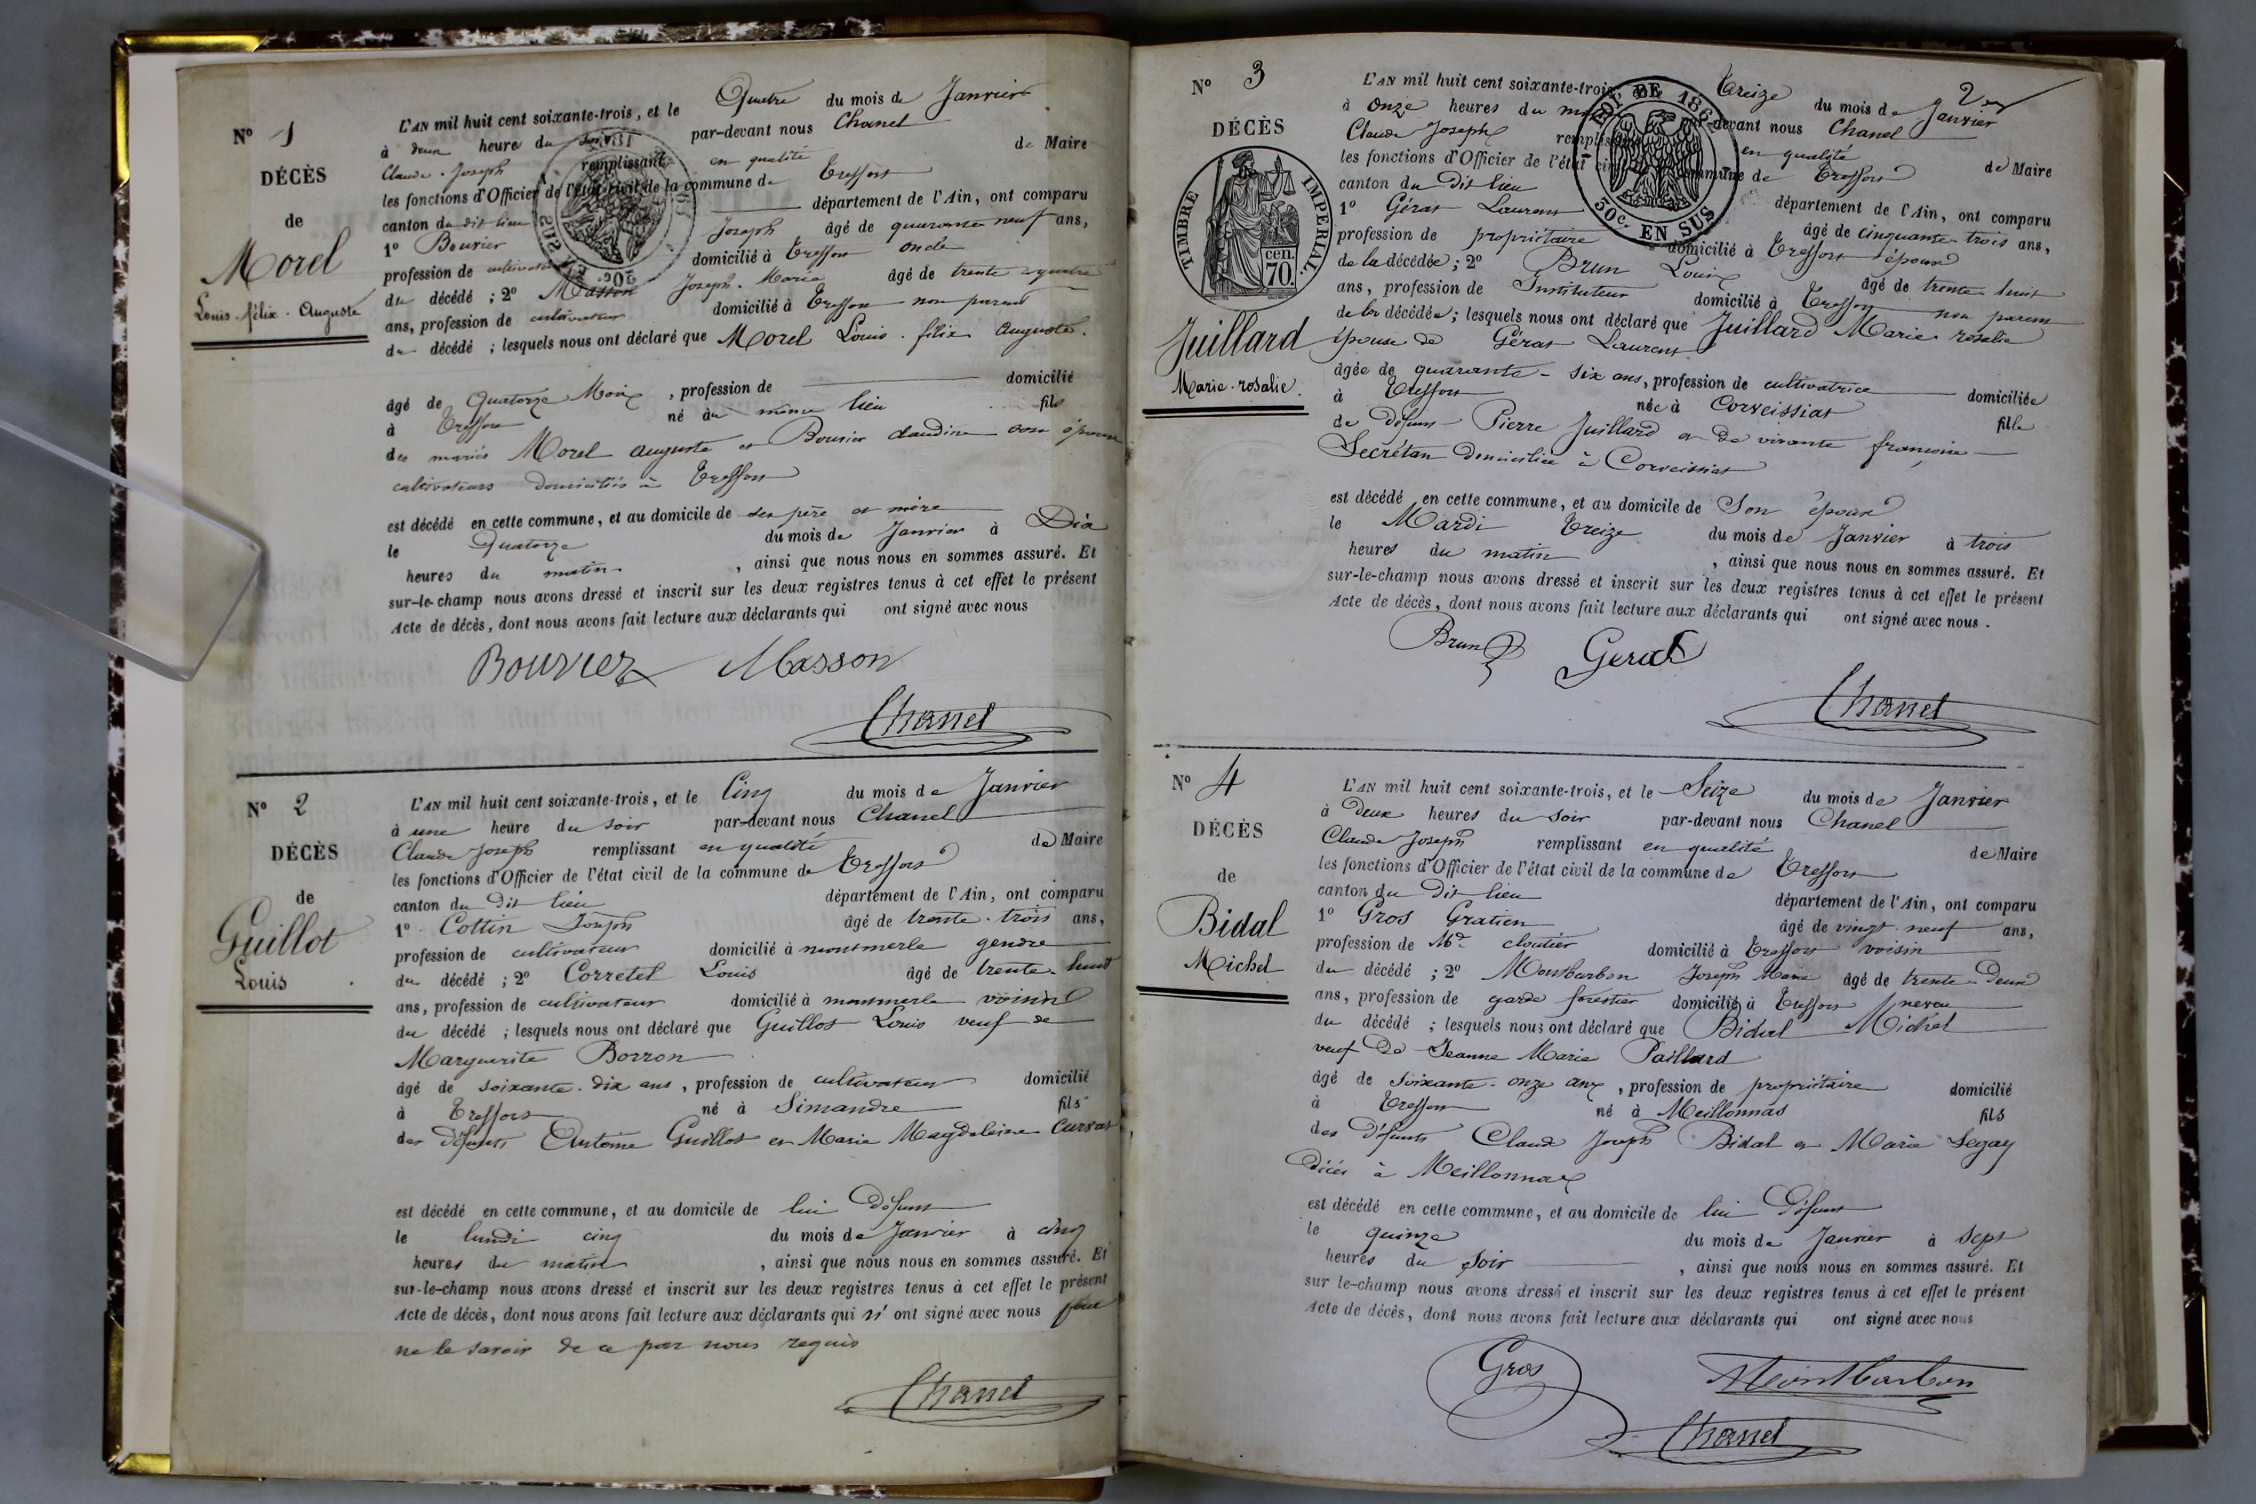 N° 1
DÉCÈS
de
Morel
Louis-félix-Auguste
L'AN mil huit cent soixante-trois, et le Quatre du mois de Janvier
à deux heure du soir par-devant nous Chanel
Claude-Joseph remplissant en qualité de Maire
les fonctions d'Officier de l'état civil de la commune de Treffort
canton du dit lieu département de l'Ain, ont comparu
1° Bouvier Joseph âgé de quarante neuf ans,
profession de cultivateur domicilié à Treffort oncle
du décédé ; 2° Masson Joseph-Marie âgé de trente quatre
ans, profession de cultivateur domicilié à Treffort non parent
du décédé ; lesquels nous ont déclaré que Morel Louis-félix auguste
âgé de quatorze Moix, profession de domicilié
à Treffort né au même lieu fils
des mariés Morel auguste et Bouvier claudine son épouse
cultivateurs domiciliés à Treffort
est décédé en cette commune, et au domicile de ses père et mère
le Quatorze du mois de Janvier à Dix
heures du matin, ainsi que nous nous en sommes assuré. Et
sur-le-champ nous avons dressé et inscrit sur les deux registres tenus à cet effet le présent
Acte de décès, dont nous avons fait lecture aux déclarants qui ont signé avec nous
Bouvier Masson
Chanel
N° 2
DÉCÈS
de
Guillot
Louis
L'AN mil huit cent soixante-trois, et le Cinq du mois de Janvier
à une heure du soir par-devant nous Chanel
Claude Joseph remplissant en qualité de Maire
les fonctions d'Officier de l'état civil de la commune de Treffort
canton du dit lieu département de l'Ain, ont comparu
1° Cottin Joseph âgé de trente-trois ans,
profession de cultivateur domicilié à montmerle gendre
du décédé ; 2° Corretel Louis âgé de trente-huit
ans, profession de cultivateur domicilié à montmerle voisin
du décédé ; lesquels nous ont déclaré que Guillot Louis veuf de
Marguerite Borron
âgé de soixante-dix ans, profession de cultivateur domicilié
à Treffort né à Simandre fils
des défunts Antoine Guillot et Marie Magdeleine Curvat
est décédé en cette commune, et au domicile de lui défunt
le lundi cinq du mois de Janvier à cinq
heures du matin, ainsi que nous nous en sommes assuré. Et
sur-le-champ nous avons dressé et inscrit sur les deux registres tenus à cet effet le présent
Acte de décès, dont nous avons fait lecture aux déclarants qui n'ont signé avec nous pour
ne le savoir de ce par nous requis
Chanel
N° 3
DÉCÈS
TIMBRE IMPERIAL.
cen.
70.
Juillard
Marie-rosalie.
LOI DE 1862
50c. EN SUS
L'AN mil huit cent soixante-trois, Treize du mois de Janvier
à onze heures du devant nous Chanel
Claude Joseph en qualité de Maire
les fonctions d'Officier de l'état commune de Treffort
canton du Dit lieu département de l'Ain, ont comparu
1° Gérat Laurent âgé de cinquante-trois ans,
profession de propriétaire domicilié à Treffort époux
de la décédée ; 2° Brun Louis âgé de trente huit
ans, profession de Instituteur domicilié à Treffort non parent
de la décédée ; lesquels nous ont déclaré que Juillard Marie rosalie
épouse de Gérat Laurent
âgée de quarante-six ans, profession de cultivatrice domiciliée
à Treffort née à Corveissiat fille
de défunt Pierre Juillard et de vivante françoise
Secrétan domiciliée à Corveissiat
est décédé en cette commune, et au domicile de Son époux
le Mardi Treize du mois de Janvier à trois
heures du matin, ainsi que nous nous en sommes assuré. Et
sur-le-champ nous avons dressé et inscrit sur les deux registres tenus à cet effet le présent
Acte de décès, dont nous avons fait lecture aux déclarants qui ont signé avec nous.
Brun Gerat
Chanel
N° 4
DÉCÈS
de
Bidal
Michel
L'AN mil huit cent soixante-trois, et le Seize du mois de Janvier
à Deux heures du soir par-devant nous Chanel
Claude Joseph remplissant en qualité de Maire
les fonctions d'Officier de l'état civil de la commune de Treffort
canton du Dit lieu département de l'Ain, ont comparu
1° Gros Gratien âgé de vingt-neuf ans,
profession de Md cloutier domicilié à Treffort voisin
du décédé ; 2° Montbarbon Joseph Marie âgé de trente-Deux
ans, profession de garde forestier domicilié à Treffort neveu
du décédé ; lesquels nous ont déclaré que Bidal Michel
veuf de Jeanne Marie Paillard
âgé de soixante-onze anx, profession de propriétaire domicilié
à Treffort né à Meillonnas fils
des défunts Claude Joseph Bidal et Marie Legay
décés à Meillonnax
est décédé en cette commune, et au domicile de lui défunt
le quinze du mois de Janvier à Sept
heures du soir, ainsi que nous nous en sommes assuré. Et
sur le-champ nous avons dressé et inscrit sur les deux registres tenus à cet effet le présent
Acte de décès, dont nous avons fait lecture aux déclarants qui ont signé avec nous
Gros Montbarbon
Chanel